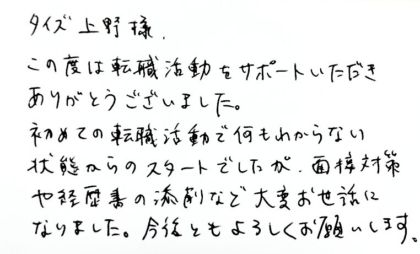 タイズ 上野様、
この度は転職活動をサポートいただき
ありがとうございました。
初めての転職活動で何もわからない
状態からのスタートでしたが、面接対策
や経歴書の添削など大変お世話に
なりました。今後ともよろしくお願いします。